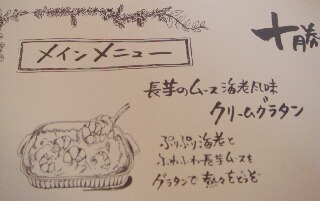 十勝
メインメニュー
長芋のムース海老風味
クリームグラタン
ぷりぷり海老と
ふわふわ長芋ムースを
グラタンで熱々をどうぞ